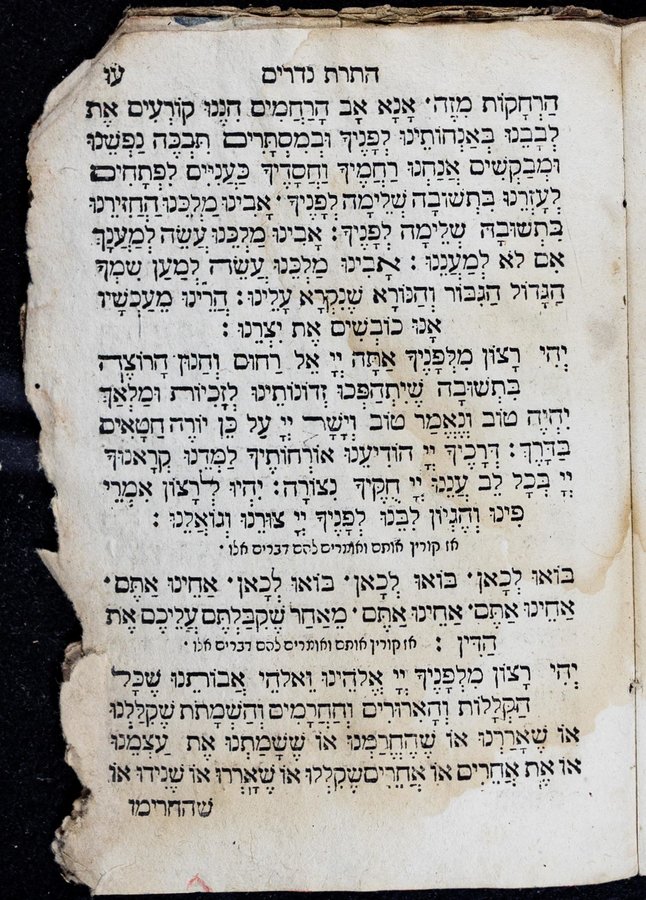 עו התרת נדרים
הַרְחָקוֹת מִזֶּה׃ אָנָא אָב הָרַחֲמִים הִנְנוּ קוֹרְעִים אֶת
לְבָבֵנוּ בְּאַנְחוֹתֵינוּ לְפָנֶיךָ וּבְמִסְתָּרִים תִּבְכֶּה נַפְשֵׁנוּ
וּמְבַקְשִׁים אֲנַחְנוּ רַחֲמֶיךָ וַחֲסָדֶיךָ כַּעֲנִיִּים לִפְתָחִים
לְעָזְרֵנוּ בִּתְשׁוּבָה שְׁלֵימָה לְפָנֶיךָ ׃ אָבִינוּ מַלְכֵּנוּ הַחֲזִירֵנוּ
בִּתְשׁוּבָה שְׁלֵימָה לְפָנֶיךָ׃ אָבִינוּ מַלְכֵּנוּ עֲשֵׂה לְמַעֲנָךְ
אִם לֹא לְמַעֲנֵנוּ ׃ אָבִינוּ מַלְכֵּנוּ עֲשֵׂה לְמַעַן שִׁמְךָ
הַגָּדוֹל הַגִּבּוֹר וְהַנּוֹרָא שֶׁנִּקְרָא עָלֵינוּ׃ הֲרֵינוּ מֵעַכְשָׁיו
אָנוּ כּוֹבְשִׁים אֶת יִצְרֵנוּ ׃
יְהִי רָצוֹן מִלְּפָנֶיךָ אַתָּה יְיָ אֵל רַחוּם וְחַנּוּן הָרוֹצֶה
בִּתְשׁוּבָה שֶׁיִּתְהַפְּכוּ זְדוֹנוֹתֵינוּ לְזָכִיּוֹת וּמַלְאָךְ
יִהְיֶה טוֹב וְנֶאֱמַר טוֹב וְיָשָׁר יְיָ עַל כֵּן יוֹרֶה חַטָּאִים
בַּדָּרֶךְ׃ דְּרָכֶיךָ יְיָ הוֹדִיעֵנוּ אוֹרְחוֹתֶיךָ לַמְּדֵנוּ קְרָאנוּךָ
יְיָ בְּכָל לֵב עֲנֵנוּ יְיָ חֻקֶּיךָ נִצּוֹרָה׃ יִהְיוּ לְרָצוֹן אִמְרֵי
פִינוּ וְהֶגְיוֹן לִבֵּנוּ לְפָנֶיךָ יְיָ צוּרֵנוּ וְגוֹאֲלֵנוּ ׃
אז קורין אותם ואומרים להם דברים אלו ׃
בּוֹאוּ לְכָאן׃ בּוֹאוּ לְכָאן׃ בּוֹאוּ לְכָאן׃ אַחֵינוּ אַתֶּם׃
אַחֵינוּ אַתֶּם׃ אַחֵינוּ אַתֶּם׃ מֵאַחַר שֶׁקִּבַּלְתֶּם עֲלֵיכֶם אֶת
הַדִּין ׃ אז קורין אותם ואומרים להם דברים אלו ׃
יְהִי רָצוֹן מִלְפָנֶיךָ יְיָ אֱלֹהֵינוּ וֵאלֹהֵי אֲבוֹתֵינוּ שֶׁכָּל
הַקְּלָלוֹת וְהָאֲרוּרִים וְהַחֲרָמִים וְהַשַּׁמָּתֹת שֶׁקִּלַּלְנוּ
אוֹ שֶׁאָרַרְנוּ אוֹ שֶׁהֶחֱרַמְנוּ אוֹ שֶׁשָּׁמַתְנוּ אֶת עַצְמֵנוּ
אוֹ אֶת אֲחֵרִים אוֹ אֲחֵרִים שֶׁקִלְלוּ אוֹ שֶׁאָרְרוּ אוֹ שֶׁנִּידוּ אוֹ
שהחרימו